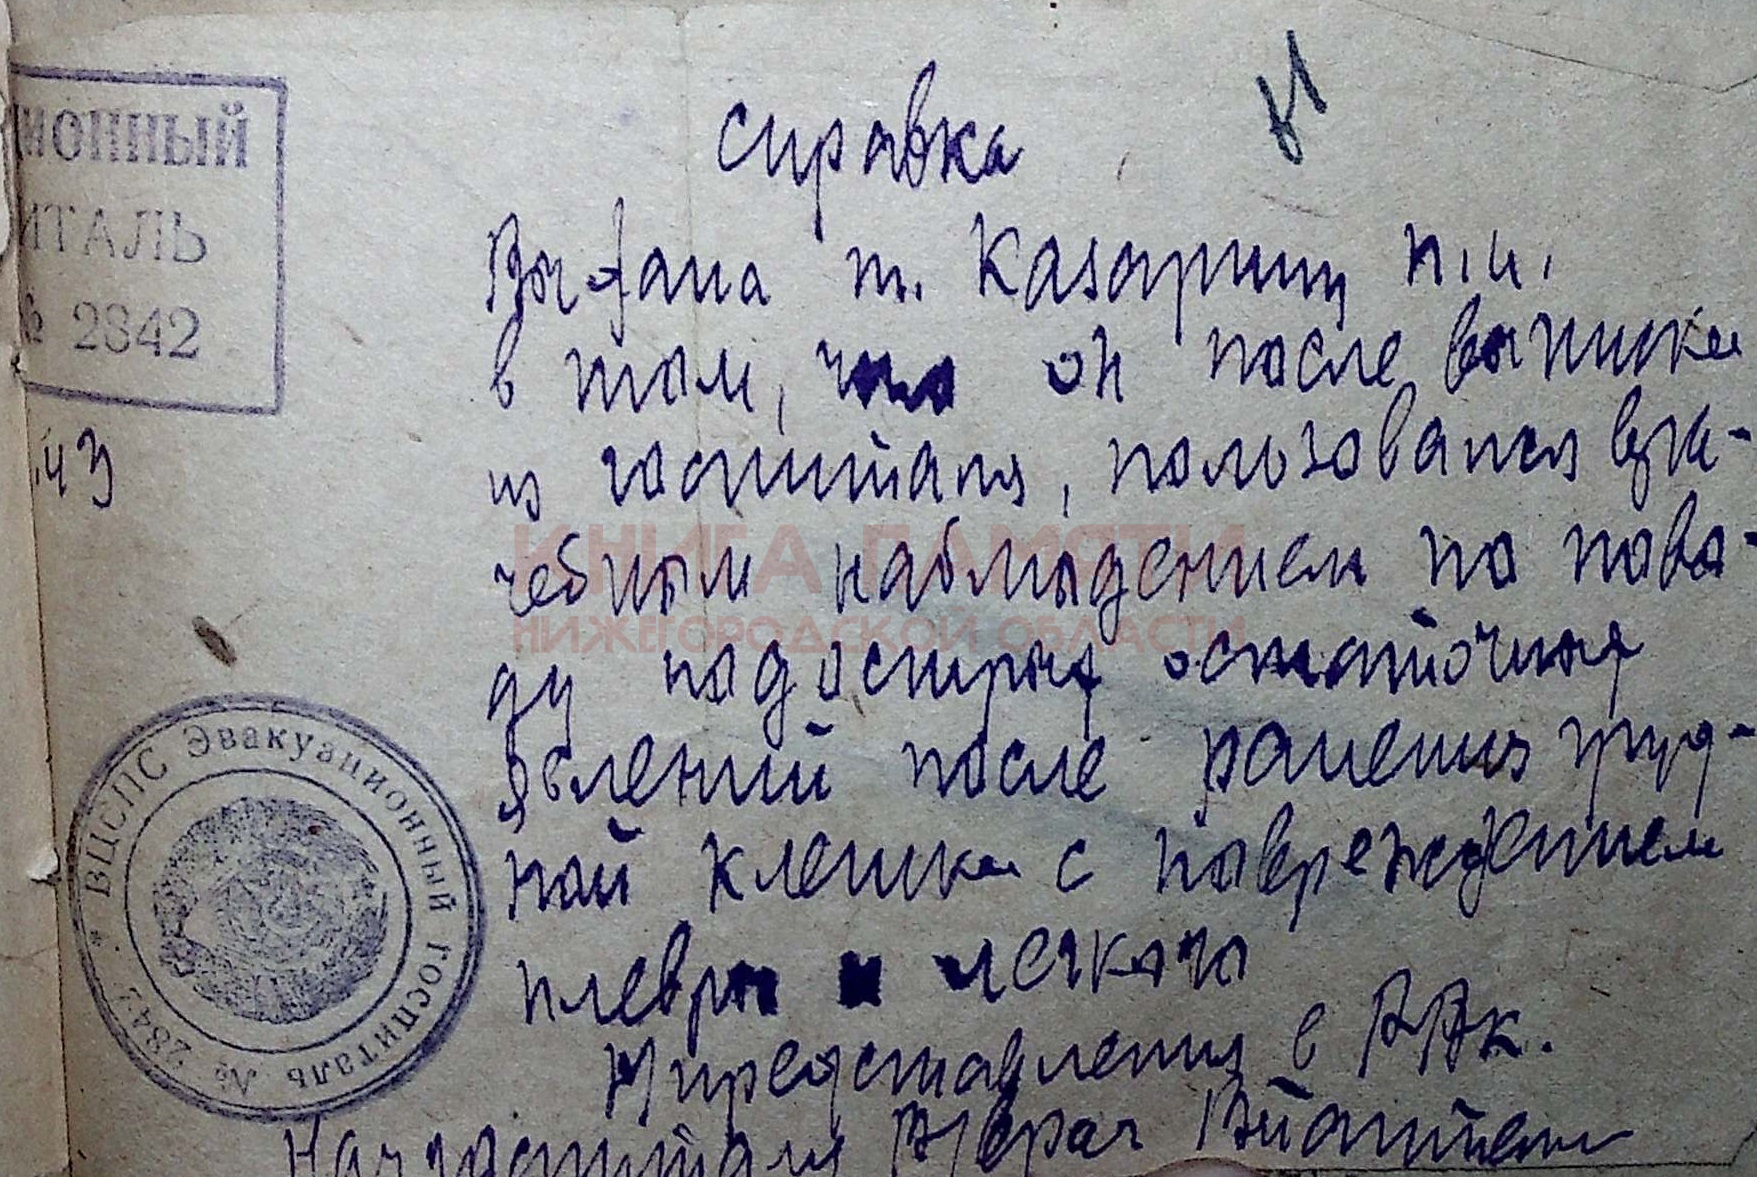 ционный
италь
№ 2842
.43
И
Справка
Выдана т. Казарину П.И.
в том, что он после выписки
из госпиталя, пользовался вра-
чебным наблюдением по пово-
ду подострых остаточных
явлений после ранения груд-
ной клетки с повреждением
плевры и легкого
представления в РВК.
Нач госпиталя В/врач
* ВЦСПС Эвакуационный госпиталь № 2842
КНИГА ПАМЯТИ
НИЖЕГОРОДСКОЙ ОБЛАСТИ